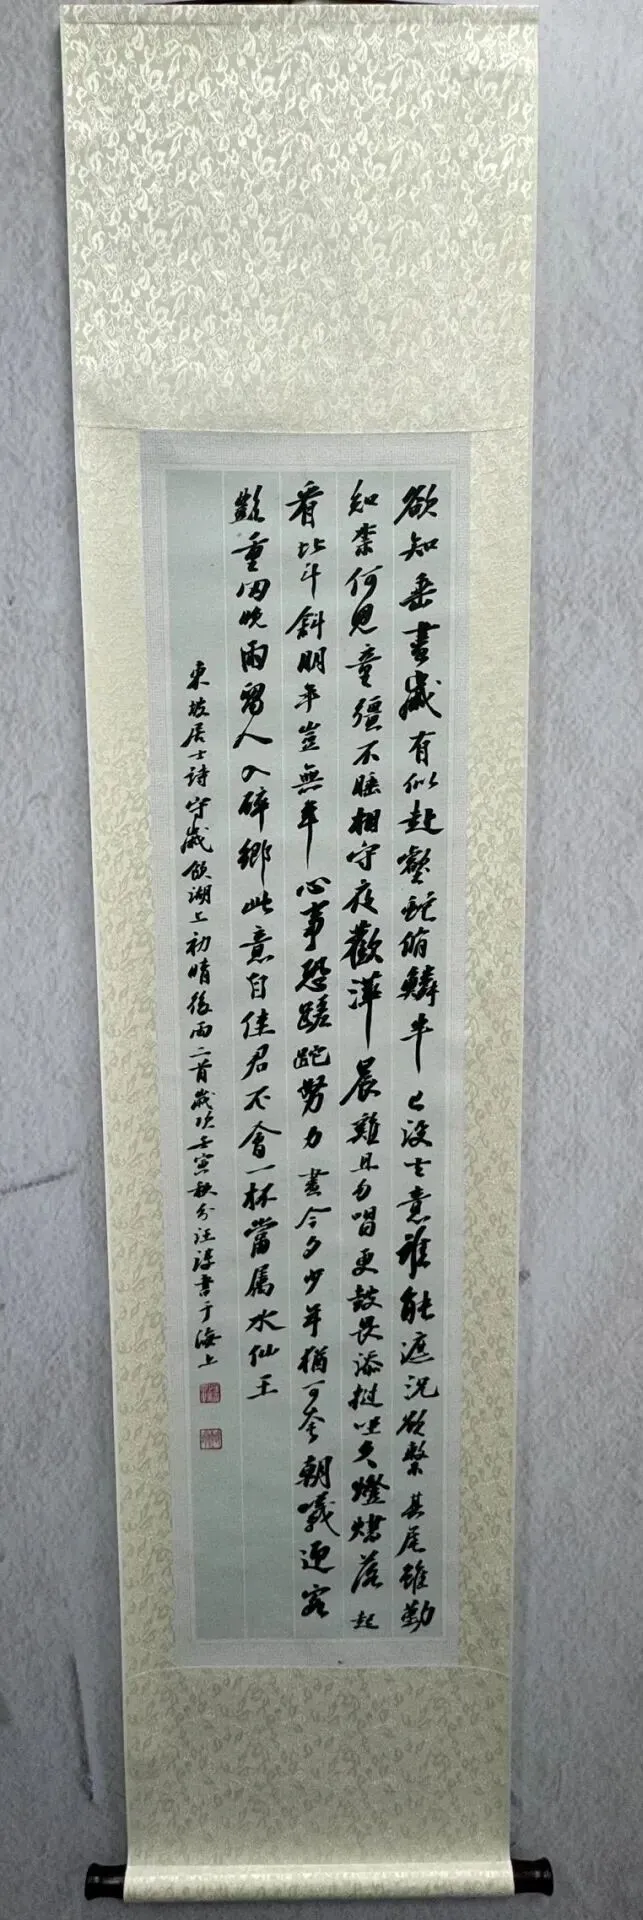 欲知垂盡歲有似赴壑蛇脩鱗半已没去意誰能遮況欲繫其尾雖勤
知柰何兒童彊不睡相守夜歡譁晨雞且勿唱更鼓畏添撾坐久燈燼落起
看北斗斜明年豈無年心事恐蹉跎努力盡今夕少年猶可夸朝曦迎客
豔重岡晚雨留人入醉鄉此意自佳君不會一杯當屬水仙王
東坡居士詩守歲飲湖上初晴後雨二首歲次壬寅秋分汪 書于海上